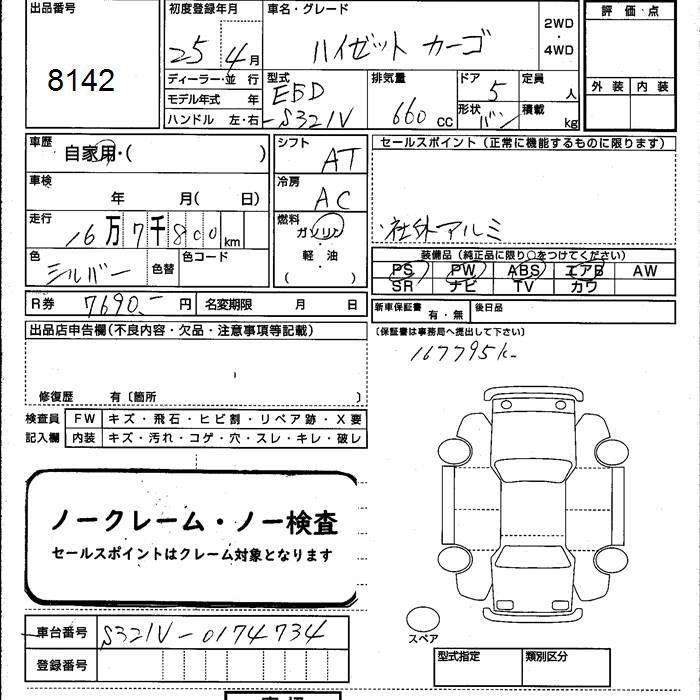 出品番号
8142
初度登録年月
25 4月
車名・グレード
ハイゼット カーゴ
2WD
・
4WD
評価・点
外装 内装
ディーラー・並行
モデル年式 年
ハンドル 左・右
型式
EBD
-S321V
排気量
660 cc
ドア
5
形状
バン
定員
人
積載
kg
車歴
自家用・( )
車検
年 月( 日)
走行
16万7千800km
色
シルバー
色替
色コード
シフト
AT
冷房
AC
燃料
ガソリン
軽・油
( )
セールスポイント (正常に機能するものに限ります)
社外アルミ
装備品 (純正品に限り○をつけてください)
PS PW ABS エアB AW
SR ナビ TV カワ
R券 7690.- 円 名変期限 月 日
新車保証書
有・無
後日品
(保証書は事務局へ提出して下さい)
167795k
出品店申告欄(不良内容・欠品・注意事項等記載)
修復歴 有〔箇所 〕
検査員
記入欄
FW キズ・飛石・ヒビ割・リペア跡・X要
内装 キズ・汚れ・コゲ・穴・スレ・キレ・破レ
ノークレーム・ノー検査
セールスポイントはクレーム対象となります
車台番号 S321V-0174734
登録番号
スペア
型式指定 類別区分